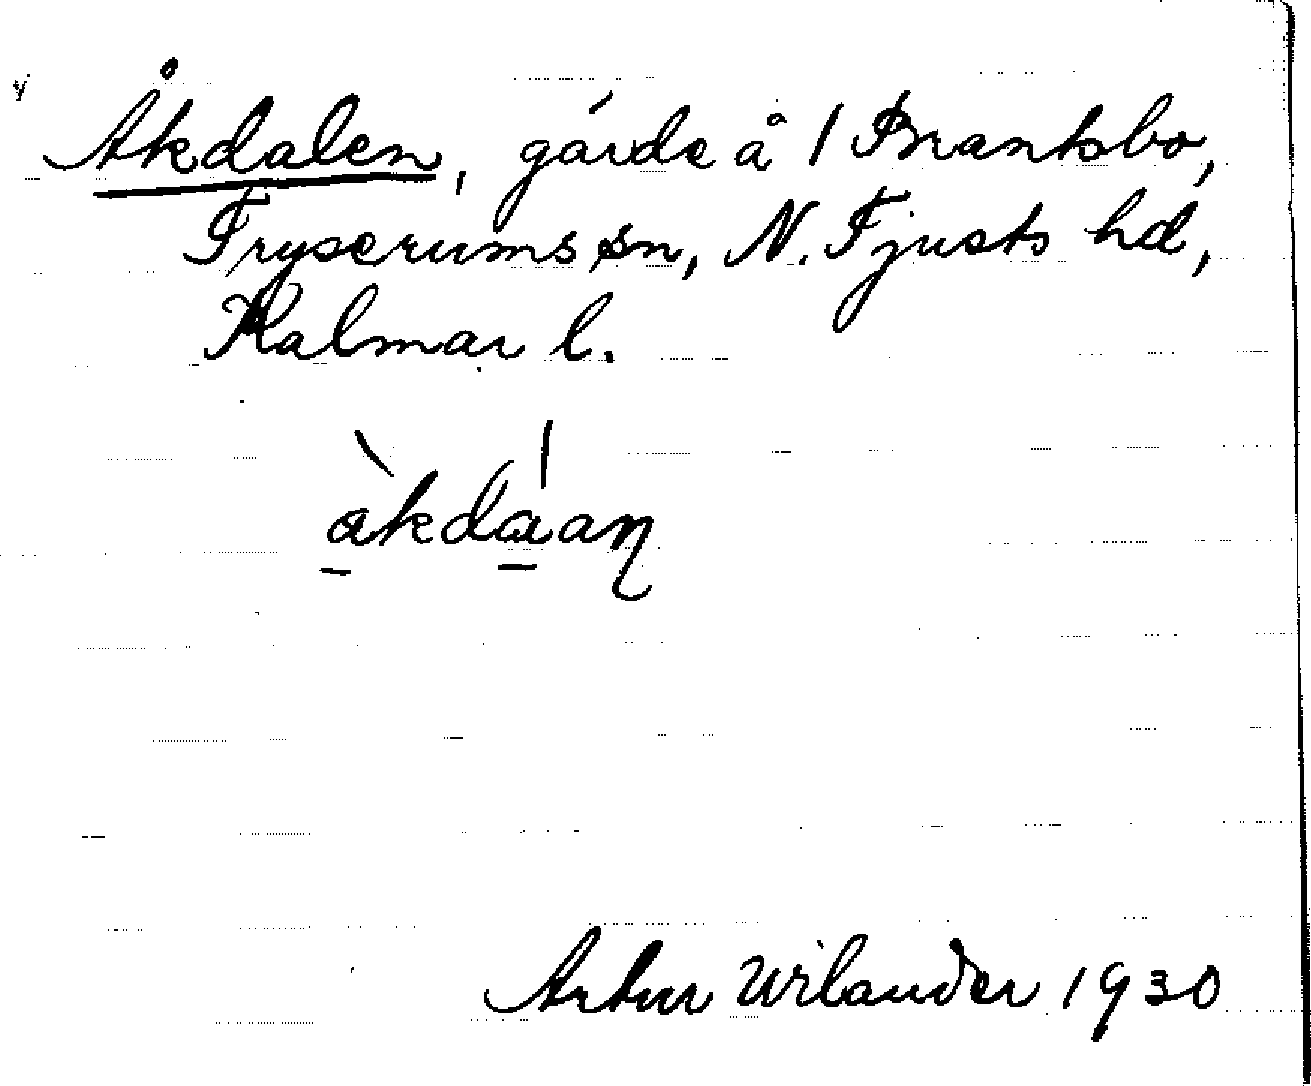 Åkdalen, gärde å 1 Brantsbo,
Tryserums sn, N. Tjusts hd,
Kalmar l.
åkdàan
Artur Wilander 1930